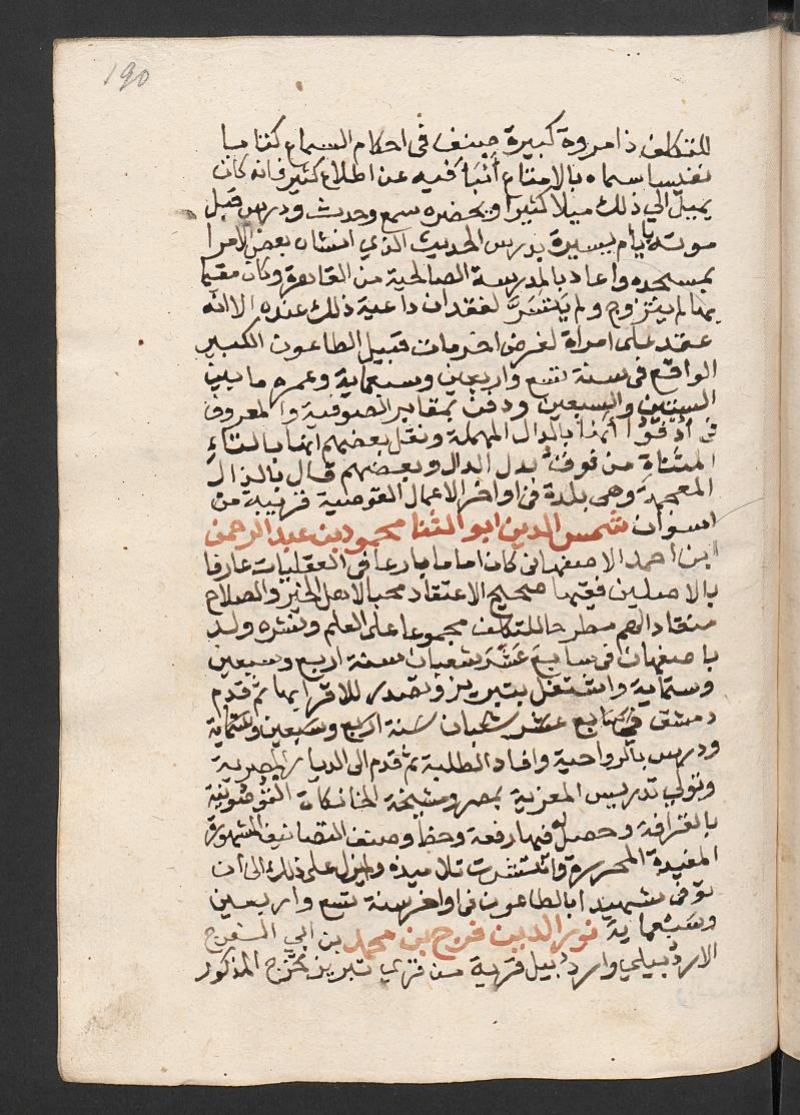 190
للتكلف ذا مروة كبيرة صنف في احكام السماع كتابا
نفيسا سماه بالامتاع أنبأ فيه عن اطلاع كثير فانه كان
يميل الي ذلك ميلا كثيرا ويحضره سمع وحدث ودرس قبل
موته بايام يسيرة بدرس الحديث الذي انشاه بعض الامرا
بمسجده واعاد بالمدرسة الصالحية من القاهرة وكان مقيما
بها لم يتزوج ولم يتسَرَّ لفقدان داعية ذلك عنده الا انه
عقد على امراة لغرض اخر مات قبيل الطاعون الكبير
الواقع في سنة تسع واربعين وسبعماية وعمره ما بين
الستين والسبعين ودفن بمقابر الصوفية والمعروف
في أدفو انها بالدال المهملة ونقل بعضهم انها بالتاء
المثناة من فوق بدل الدال وبعضهم قال بالذال
المعجمة وهي بلدة في اواخر الاعمال القوصية قريبة من
اسوان شمس الدين ابو الثنا محمود بن عبد الرحمن
ابن احمد الاصفهاني كان اماما بارعا في العقليات عارفا
بالاصلين فقيها صحيح الاعتقاد محبا لاهل الخير والصلاح
منقادا لهم مطرحا للتكلف مجموعا على العلم ونشره ولد
باصفهان في سابع عَشَرَ شعبان سنة اربع وسبعين
وستماية واشتغل بتبريز وتصدر للاقرا بها ثم قدم
دمشق في سابع عشر شعبان سنة اربع وسبعين وستماية
ودرس بالرواحية وافاد الطلبة ثم قدم الى الديار المصرية
وتولي تدريس المعزية بمصر ومشيخة الخانكاة القوصونية
بالقرافة وحصل له فيها رفعة وحظ وصنف التصانيف المشهورة
المفيدة المحررة وانتشرت تلاميذه ولم يزل على ذلك الى ان
توفي شهيدا بالطاعون في اواخر سنة تسع واربعين
وسبعماية نور الدين فرج بن محمد بن ابي الفرج
الاردبيلي واردبيل قرية من قري تبريز تخرج المذكور